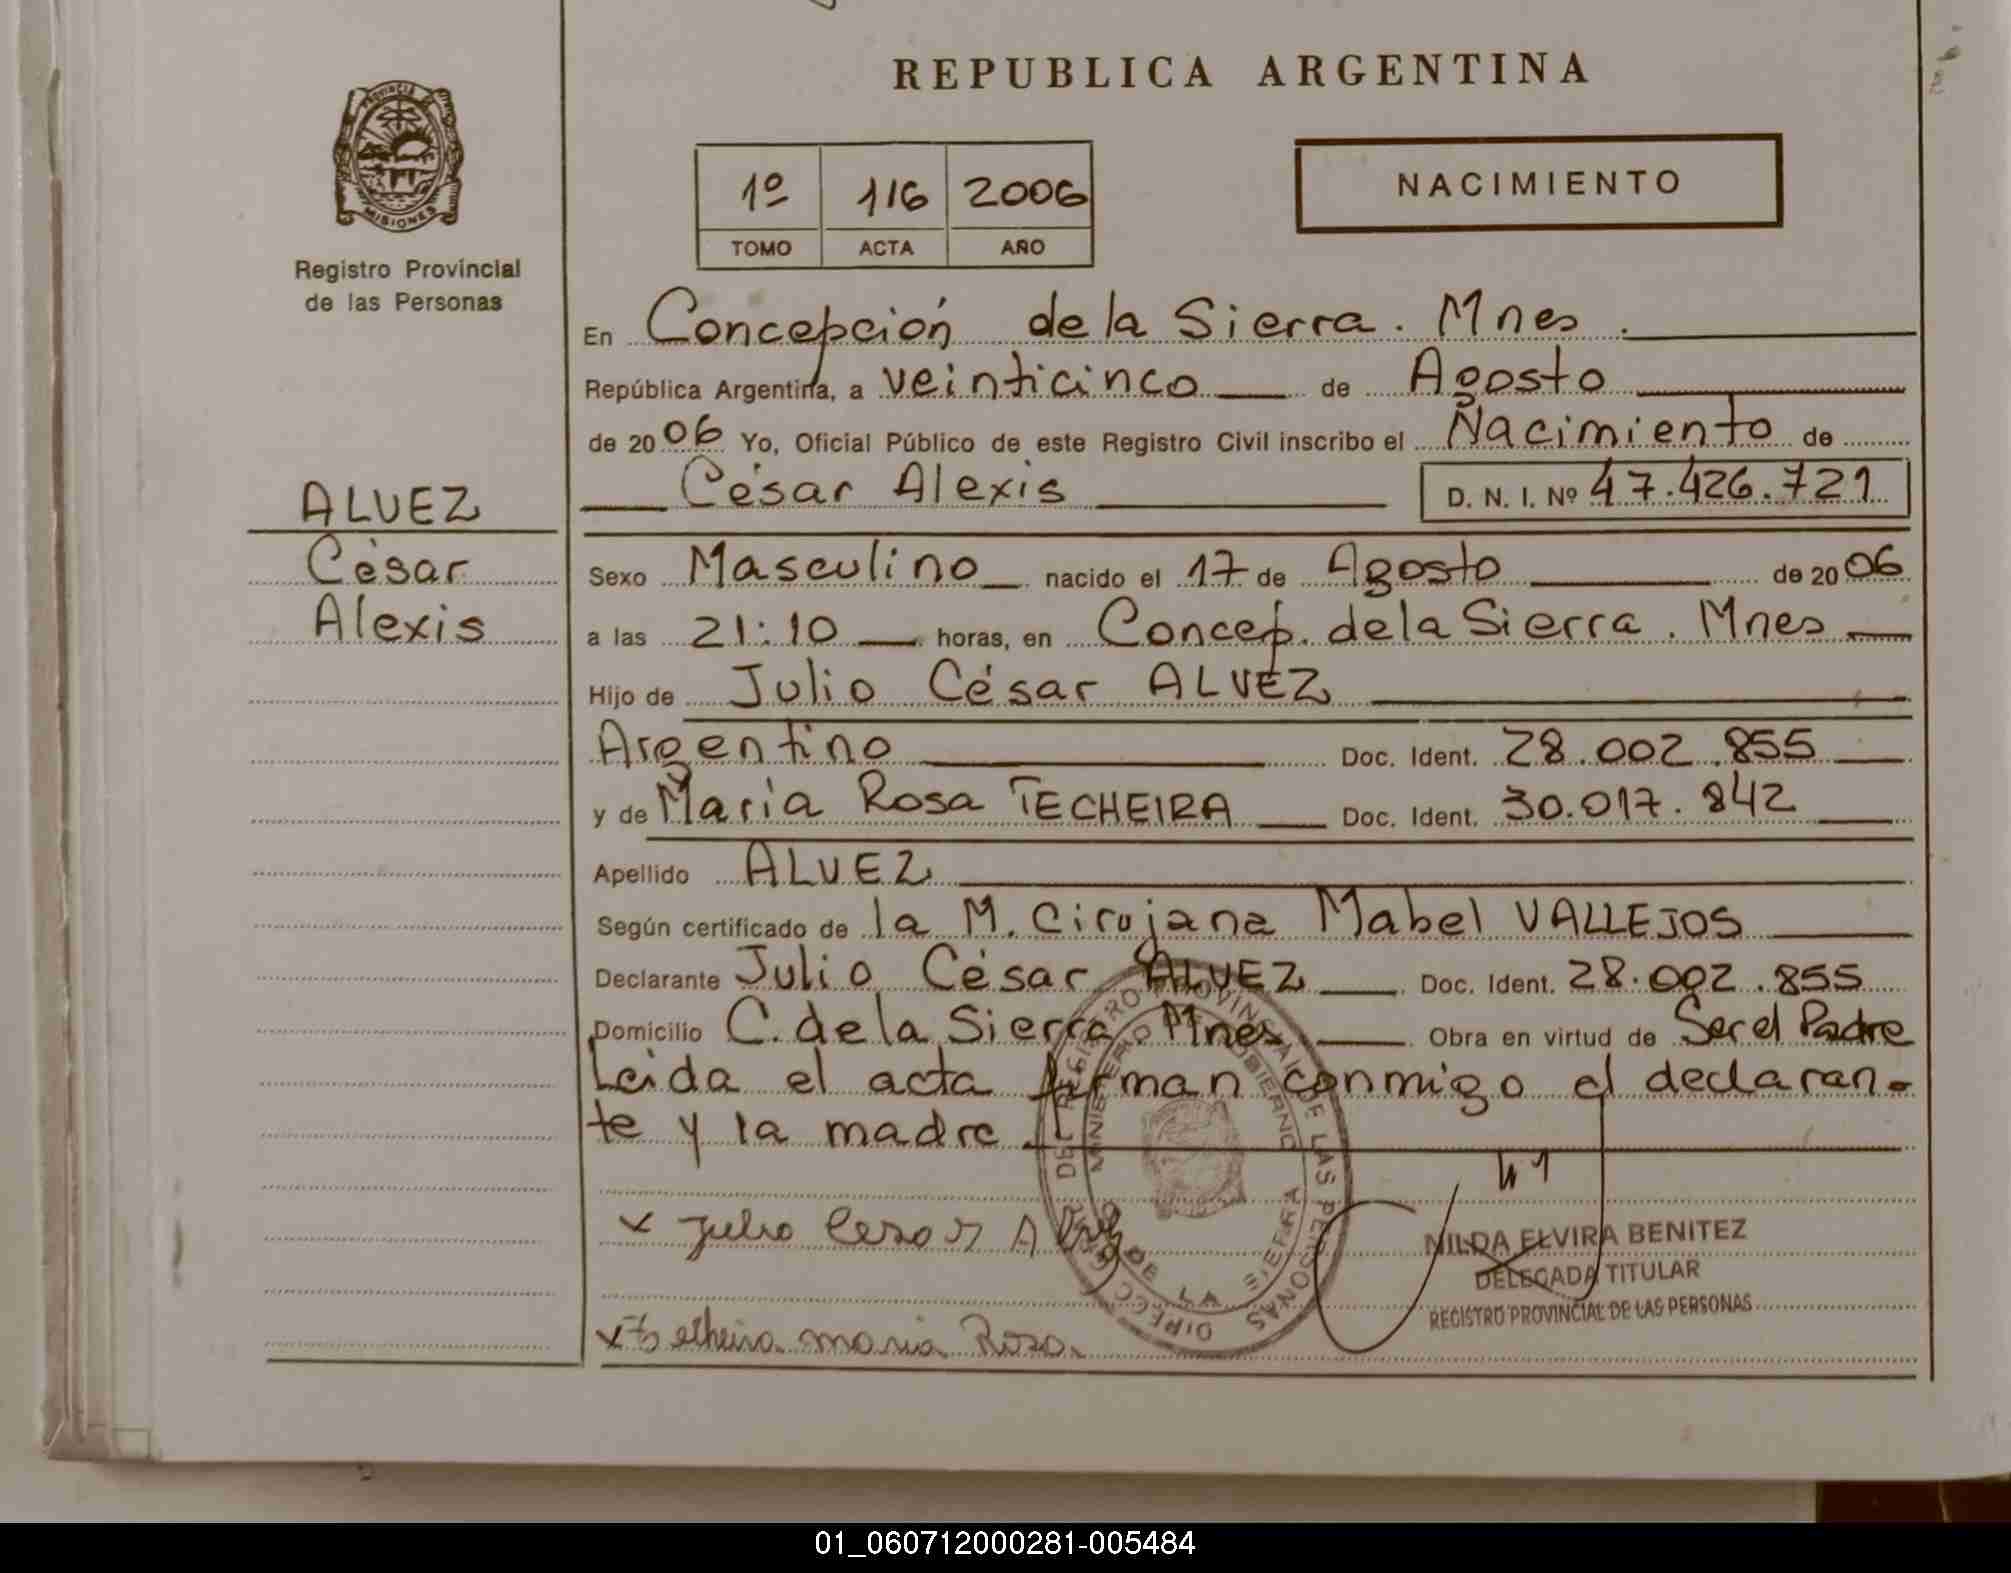 REPUBLICA ARGENTINA
PROVINCIA DE
MISIONES
Registro Provincial
de las Personas
1º 116 2006
TOMO ACTA AÑO
NACIMIENTO
En Concepción de la Sierra. Mnes.
República Argentina, a veinticinco de Agosto
de 2006 Yo, Oficial Público de este Registro Civil inscribo el Nacimiento de
César Alexis D. N. I. Nº 47.426.721
ALVEZ
César
Alexis
Sexo Masculino nacido el 17 de Agosto de 2006
a las 21:10 horas, en Concep. de la Sierra. Mnes
Hijo de Julio César ALVEZ
Argentino Doc. Ident. 28.002.855
y de María Rosa TECHEIRA Doc. Ident. 30.017.842
Apellido ALVEZ
Según certificado de la M. Cirujana Mabel VALLEJOS
Declarante Julio César ALVEZ Doc. Ident. 28.002.855
Domicilio C. de la Sierra Mnes Obra en virtud de Ser el Padre
Leida el acta firman conmigo el declaran-
te y la madre
DIRECC GRAL DEL REGISTRO PROVINCIAL DE LAS PERSONAS
MINISTERIO DE GOBIERNO
DE LA SIERRA
x Julio Cesar Alvez
NILDA ELVIRA BENITEZ
DELEGADA TITULAR
REGISTRO PROVINCIAL DE LAS PERSONAS
x Techeira maria Rosa.
01_060712000281-005484